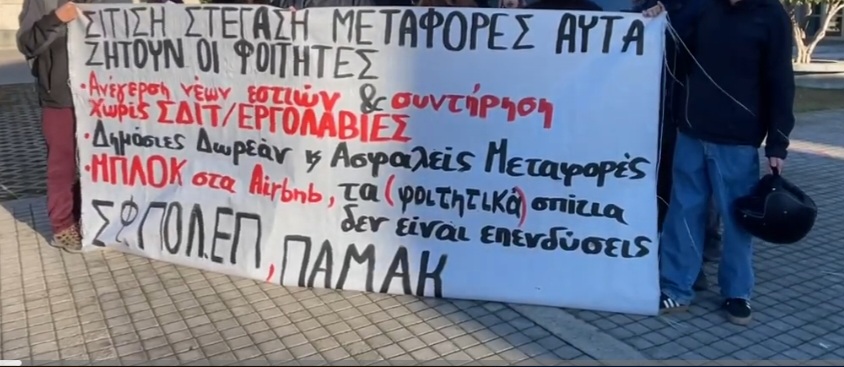 ΣΙΤΙΣΗ ΣΤΕΓΑΣΗ ΜΕΤΑΦΟΡΕΣ ΑΥΤΑ
ΖΗΤΟΥΝ ΟΙ ΦΟΙΤΗΤΕΣ
·Ανέγερση νέων εστιών & συντήρηση
χωρίς ΣΔΙΤ/ΕΡΓΟΛΑΒΙΕΣ
·Δημόσιες Δωρεάν ϗ Ασφαλείς Μεταφορές
·ΜΠΛΟΚ στα Airbnb, τα (φοιτητικά) σπίτια
δεν είναι επενδύσεις
ΣΦΠΟΛ.ΕΠ, ΠΑΜΑΚ